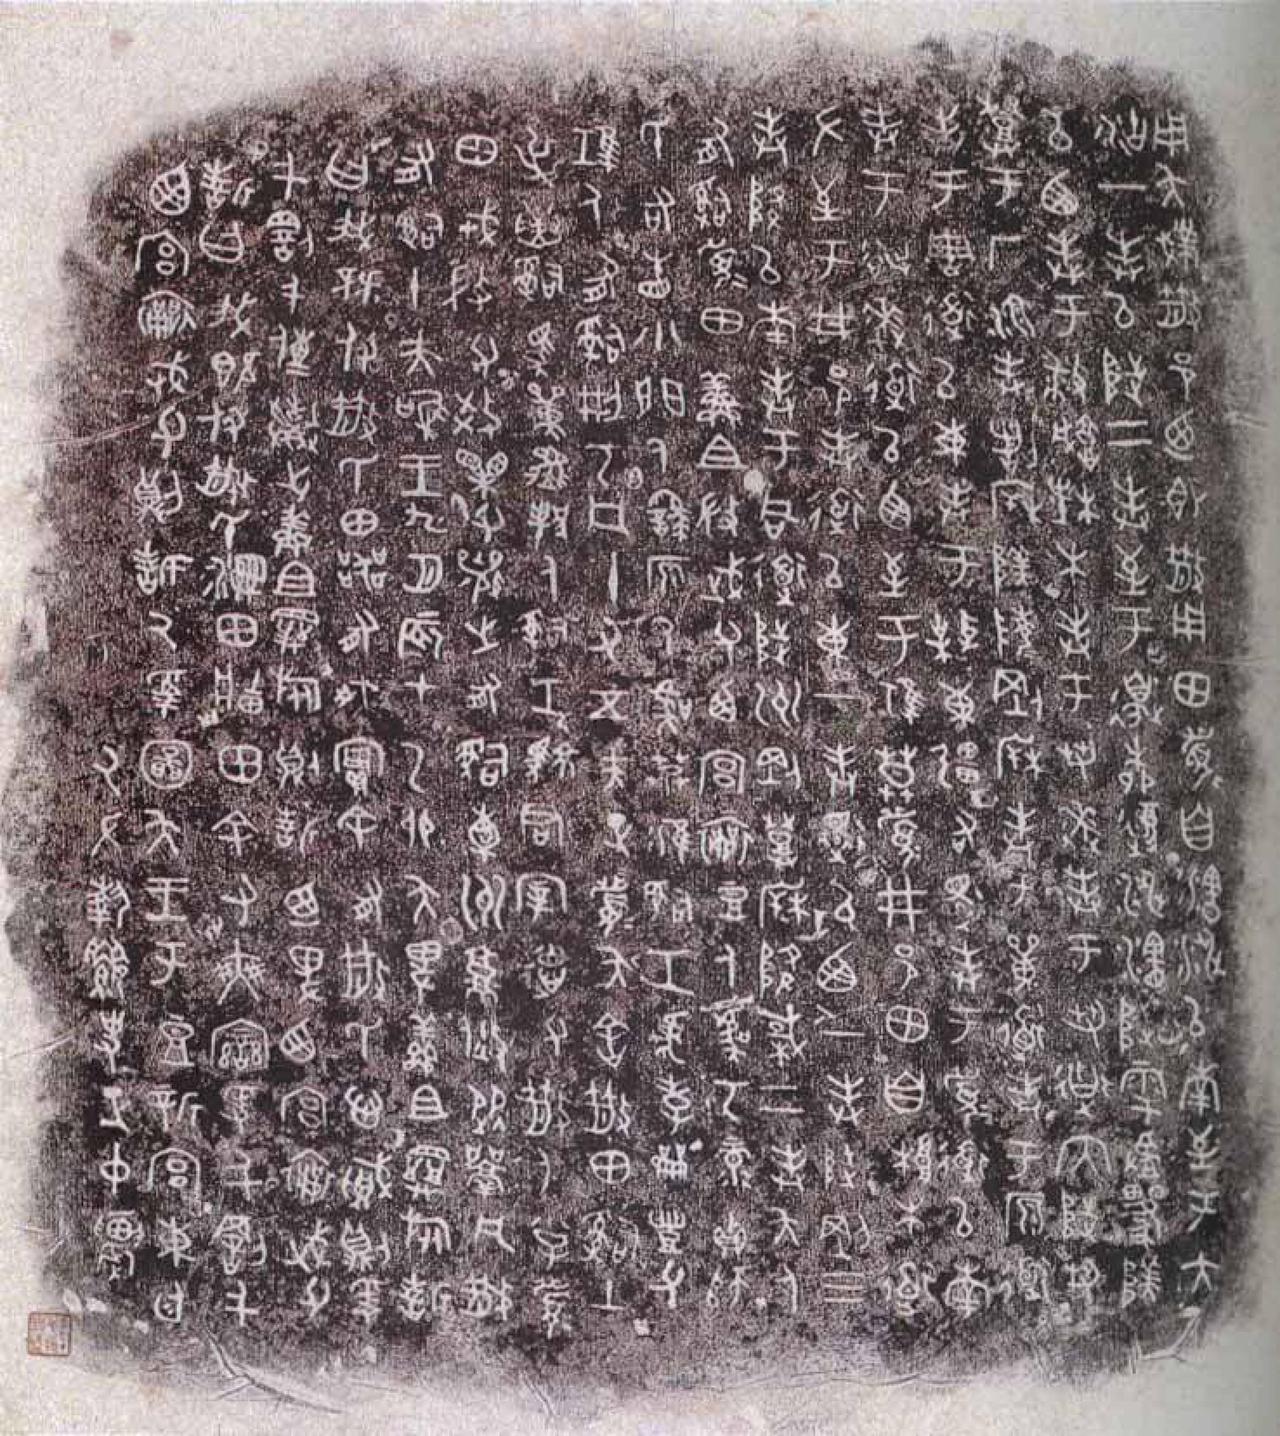 用夨𢦚散邑迺即散用田眉自瀗涉以南至于大
沽一奉以陟二奉至于邊柳復涉瀗陟雩
以西奉于播城楮木奉于芻逨奉于芻道內陟芻
登于厂湶奉陵剛奉于單道奉于原道
奉于周道以東奉于東疆右還奉于眉道以南
奉于逨道以西至于莫眉井邑田自根木道
左至于井邑奉道以東一奉還以西一奉陟剛三
奉降以南奉于同道陟州剛登降棫二奉夨人
有司眉田鮮且微武父西宮襄豆人虞丂彔貞師
氏右眚小門人繇原人虞艿淮司工虎孝龠豐父
人有司刑丂凡十又五夫正眉夨舍散田司土
屰司馬單邦人司工君宰德父散人小子眉
田戎微父效父襄之有司橐州就從凡散
有司十夫唯王九月辰才乙卯夨卑鮮且旅誓
曰我既付散氏田器有爽實余有散氏心賊則
千罰千傳棄之鮮且旅則誓迺卑西宮襄武父
誓曰我既付散氏濕田田余又爽千罰千
西宮襄武父則誓厥受圖夨王于豆新宮東廷
厥左執史正中農